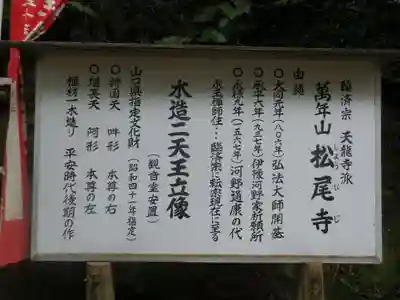 臨済宗 天龍寺派
萬年山 松尾寺
しょうびじ
由緒
○大同元年(八〇六年)弘法大師開基
○天平十六年(九三七年)伊豫河野家祈願所
○永禄九年(一五六七年)河野通康の代
水玉禅師住…臨済宗に転宗現在に至る
木造二天王立像
(観音堂安置)
山口県指定文化財
(昭和四十一年指定)
○持国天 吽形 本尊の右
○増長天 阿形 本尊の左
檜材一木造り 平安時代後期の作